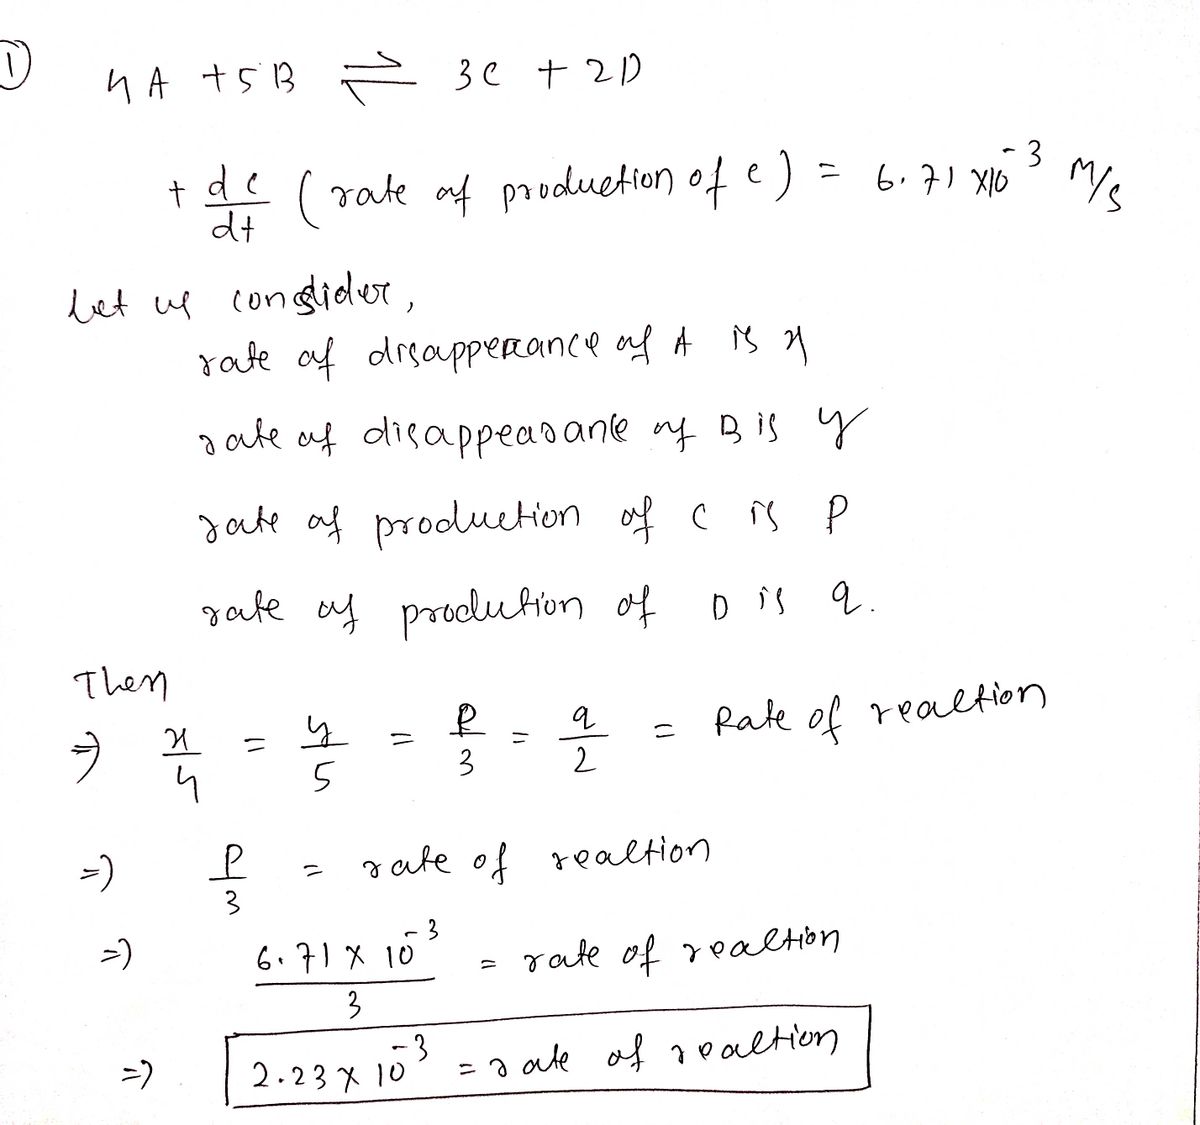 ① 4A + 5B ⇌ 3C + 2D
+ dc/dt (rate of production of c) = 6.71 x10⁻³ M/s
Let us consider,
rate of disapperance of A is x
rate of disappearance of B is y
rate of production of C is P
rate of prodution of D is q.
Then
⇒ x/4 = y/5 = P/3 = q/2 = Rate of reaction
⇒ P/3 = rate of reaction
⇒ 6.71 x 10⁻³/3 = rate of reaction
⇒ 2.23 x 10⁻³ = rate of reaction